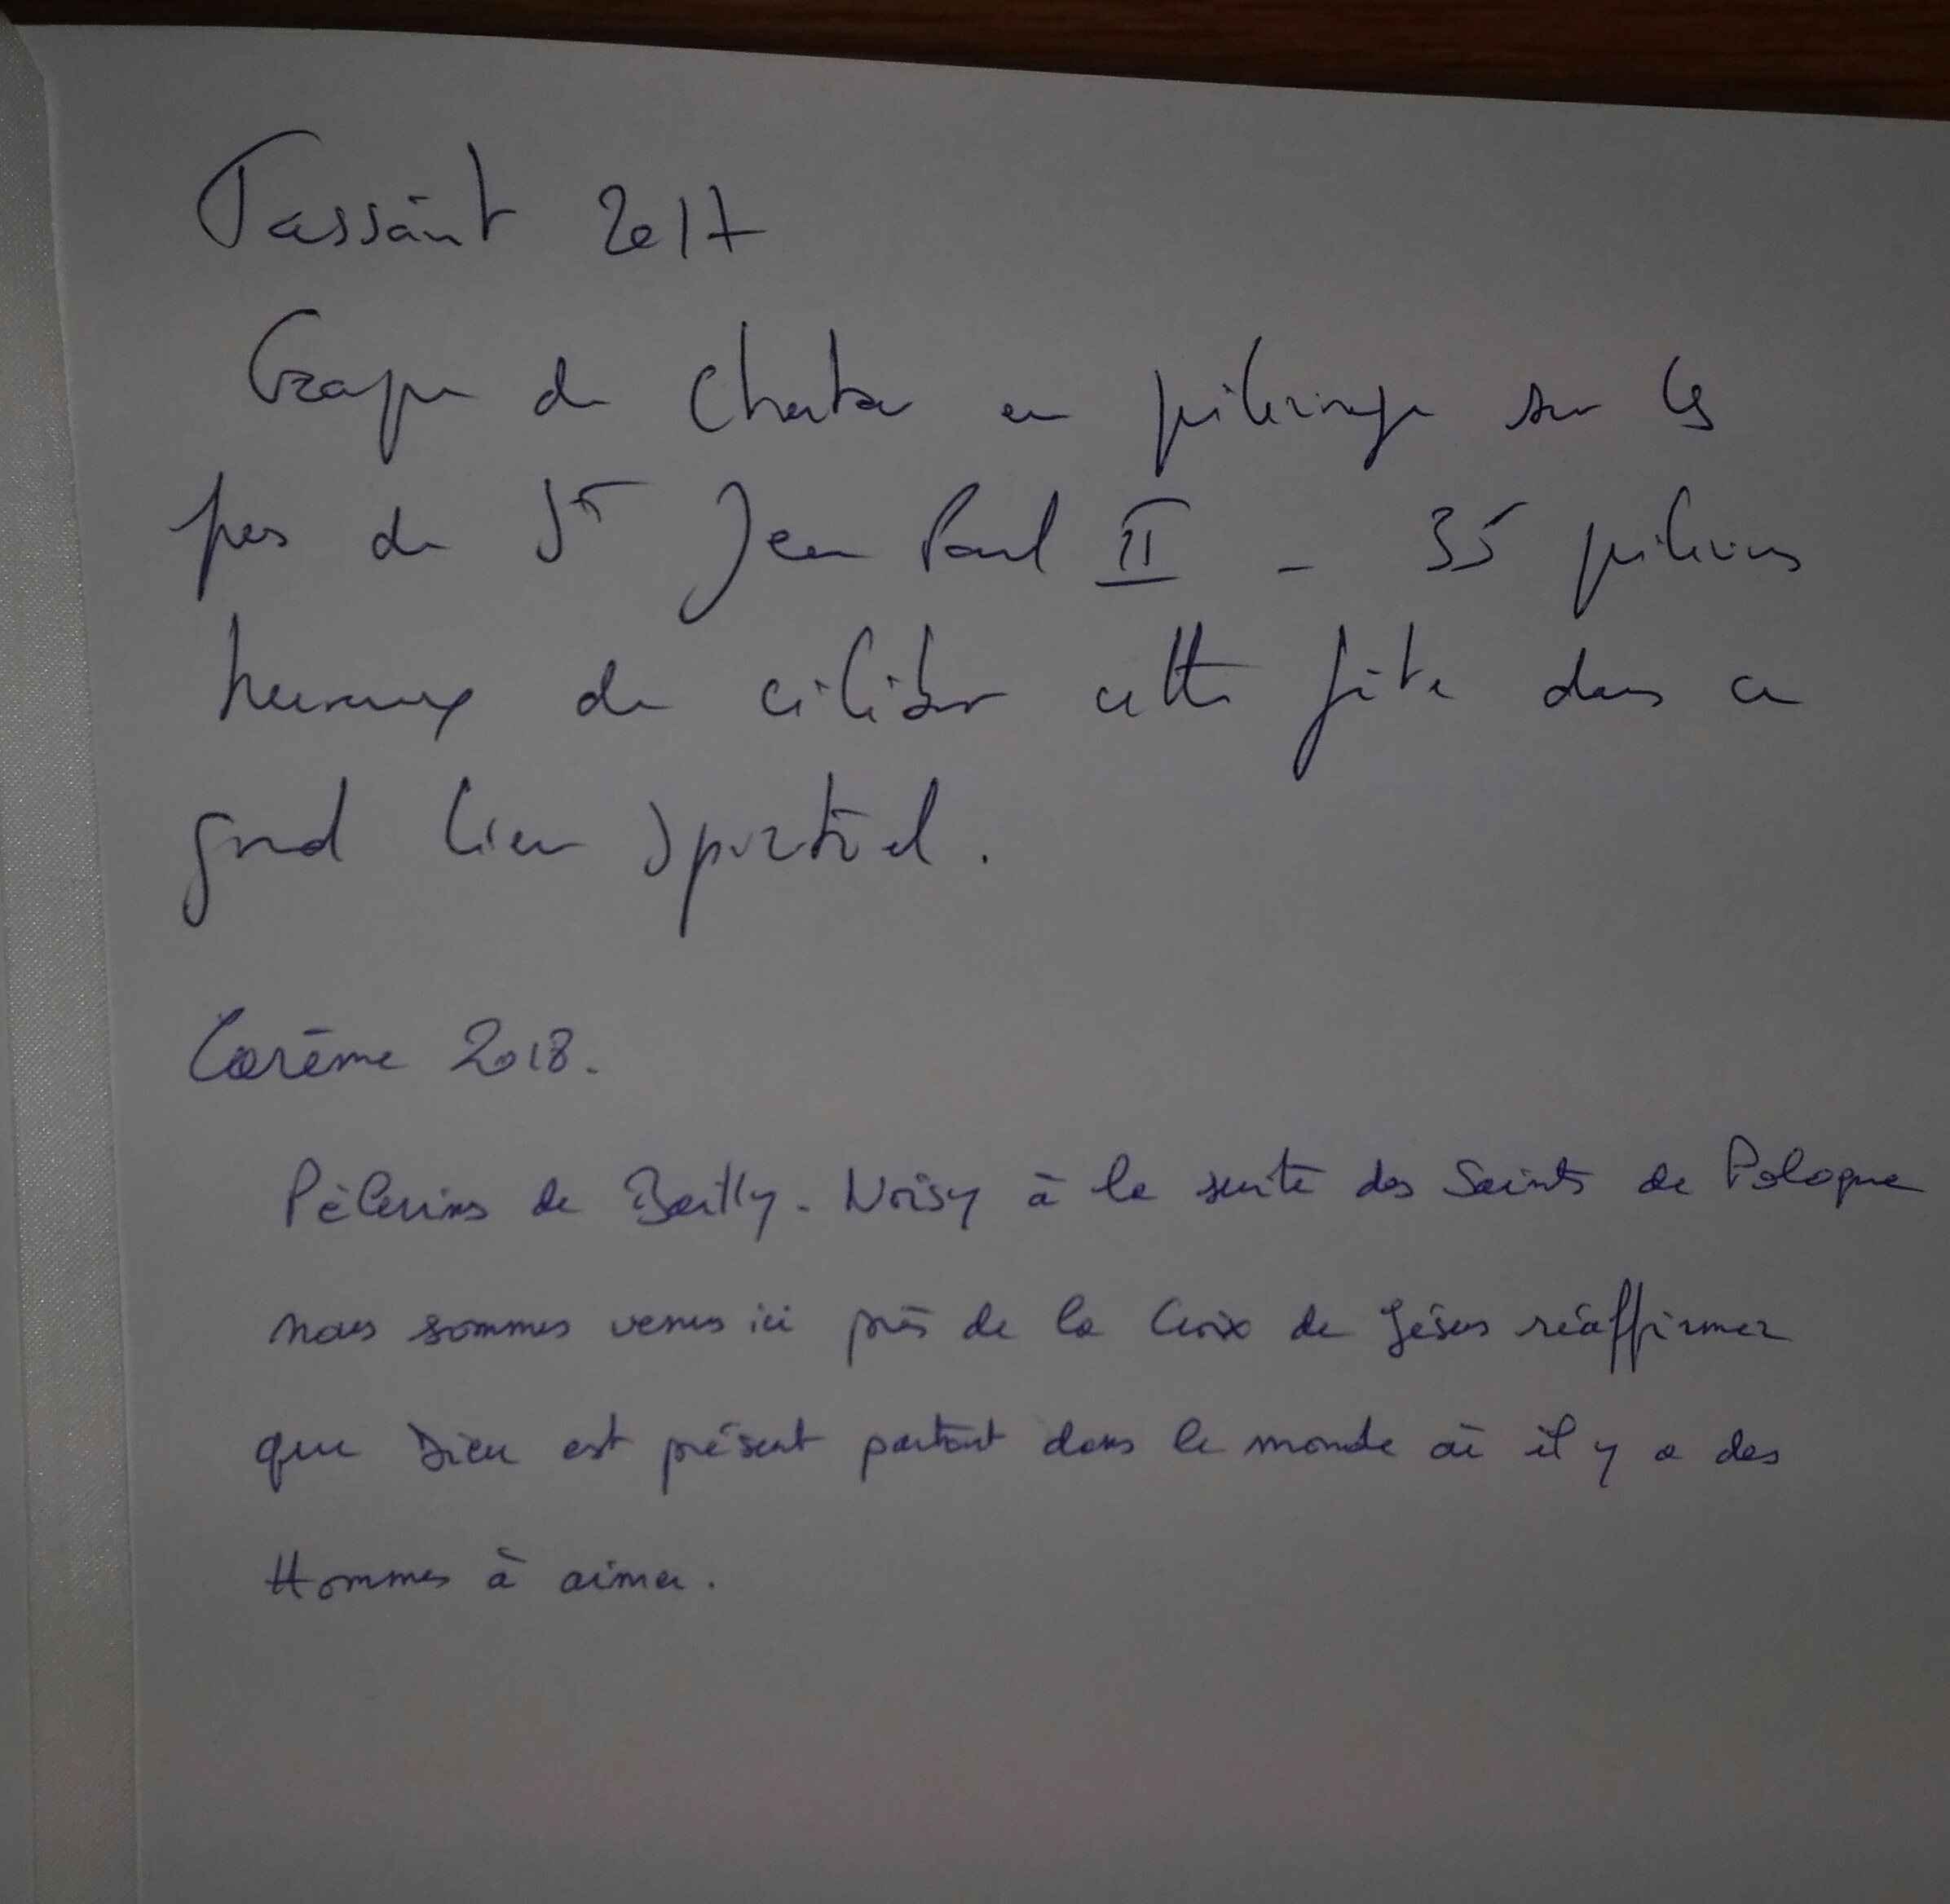 Toussaint 2017
Groupe de en pèlerinage sur les
pas de St Jean Paul II - 35 pèlerins
heureux de célébrer cette fête dans ce
grand lieu spirituel.
Carême 2018.
Pèlerins de Bailly. Noisy à la suite des Saints de Pologne
nous sommes venus ici près de la Croix de Jésus réaffirmer
que Dieu est présent partout dans le monde où il y a des
Hommes à aimer.